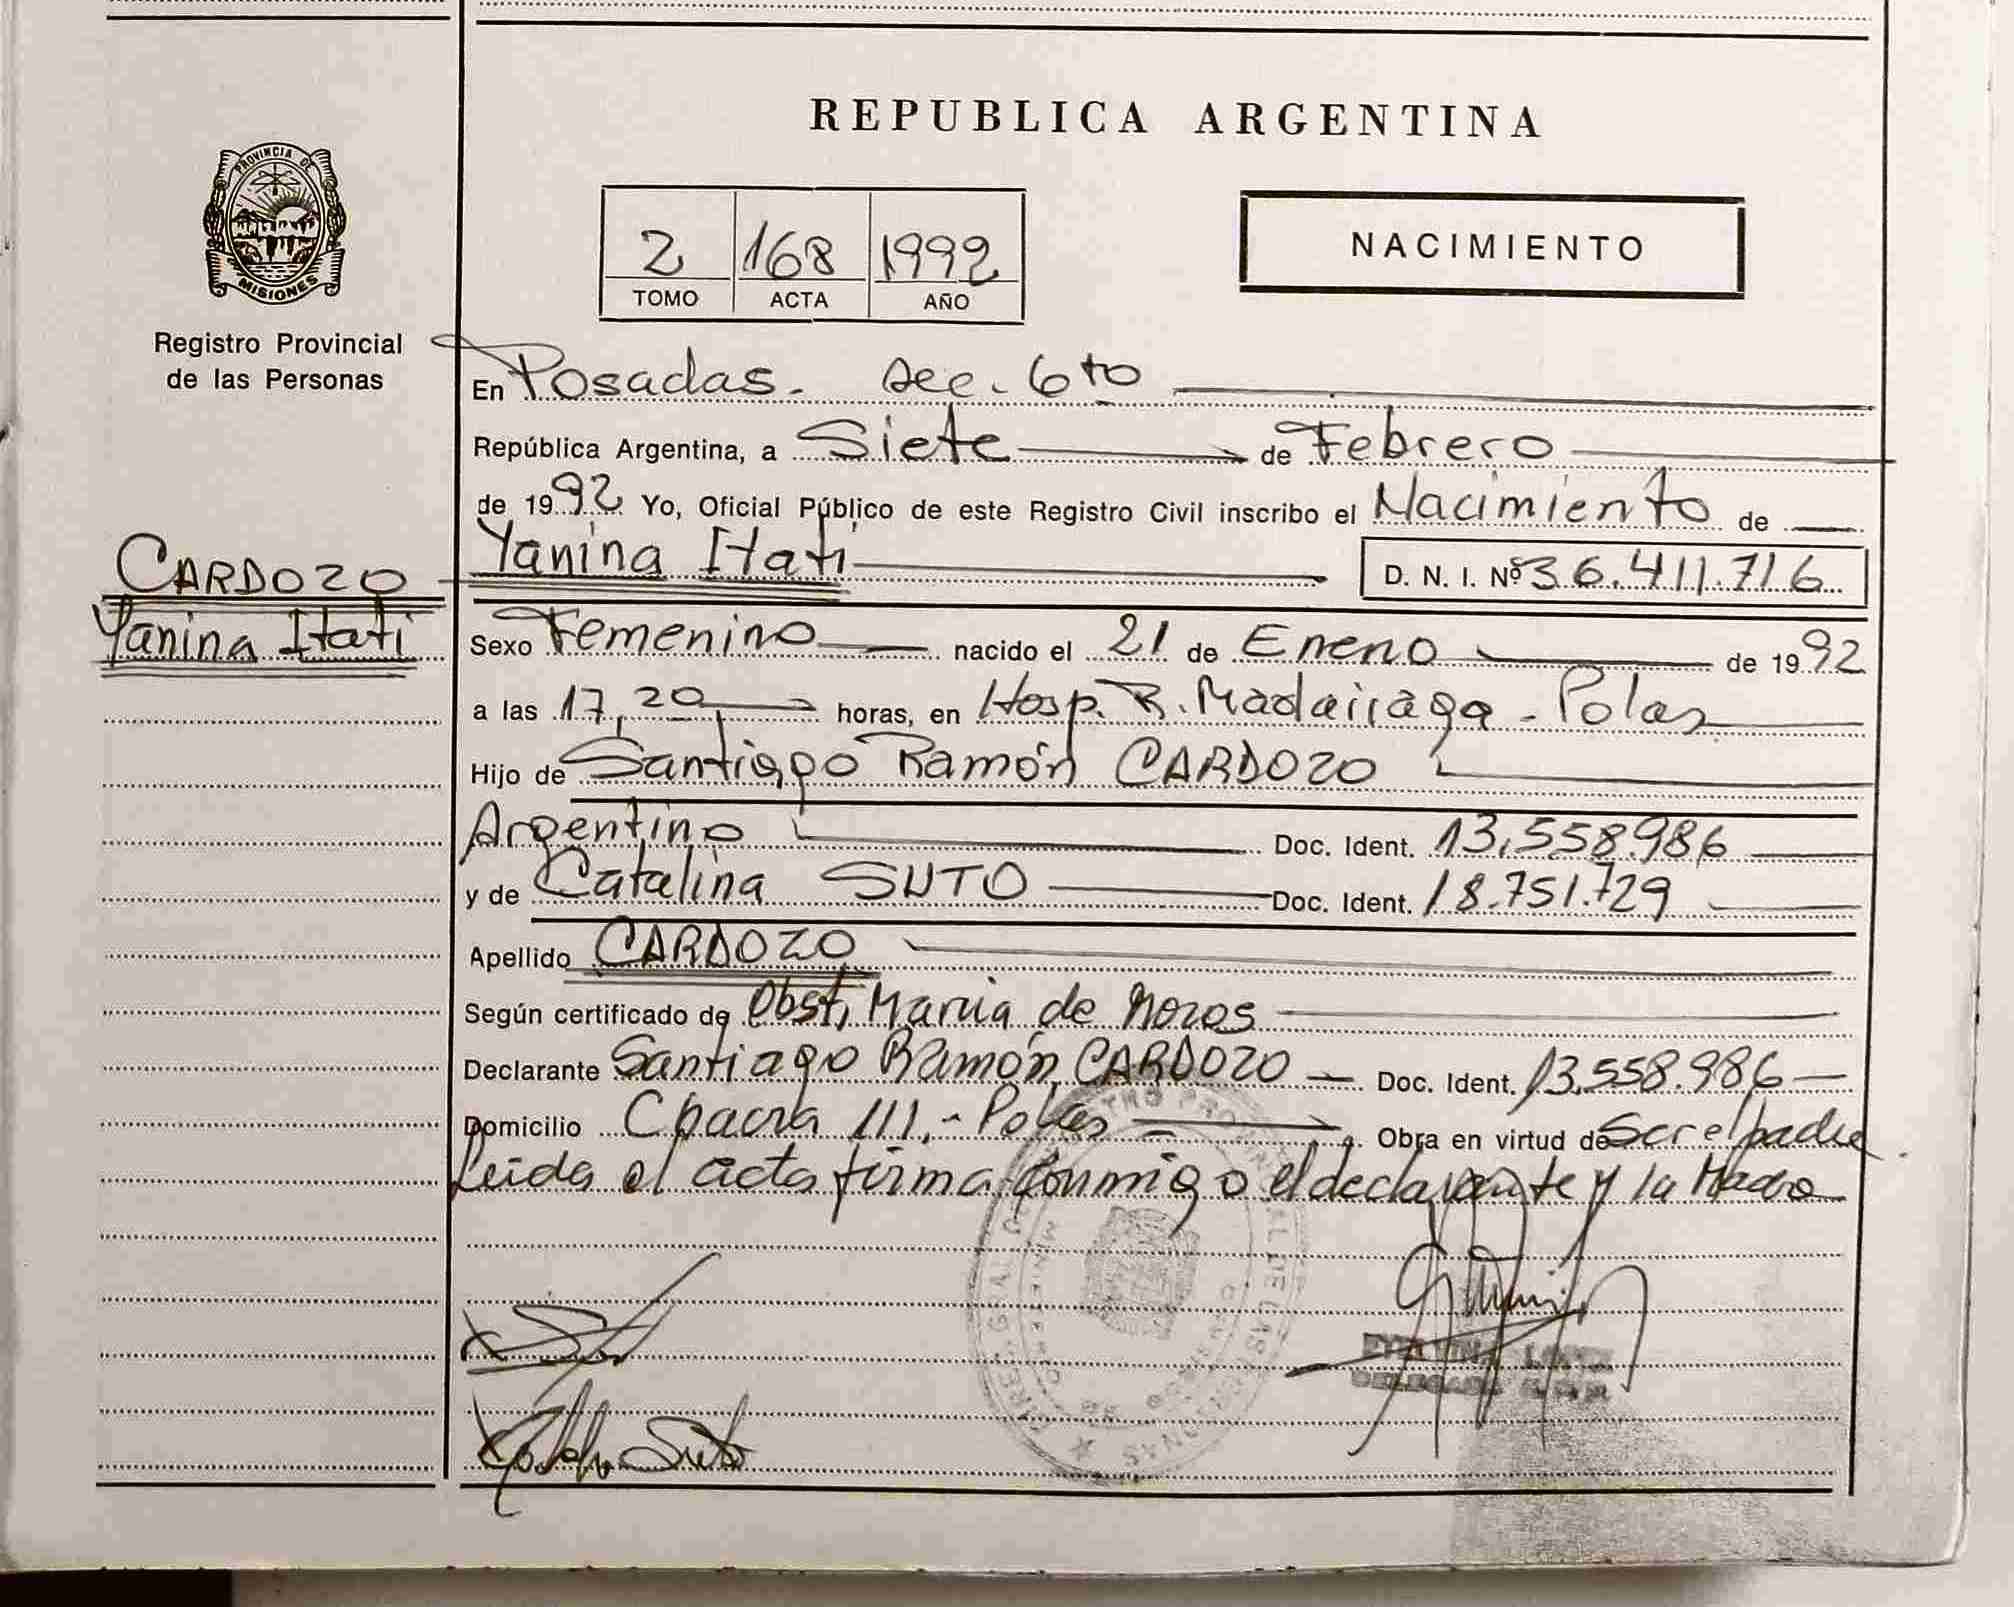 REPUBLICA ARGENTINA
PROVINCIA DE
MISIONES
Registro Provincial
de las Personas
2 168 1992
TOMO ACTA AÑO
NACIMIENTO
En Posadas. sec. 6to
República Argentina, a Siete de Febrero
de 1992 Yo, Oficial Público de este Registro Civil inscribo el Nacimiento de
CARDOZO
Yanina Itati
Yanina Itati D. N. I. Nº 36.411.716
Sexo Femenino nacido el 21 de Enero de 1992
a las 17,20 horas, en Hosp. R. Madariaga - Pdas
Hijo de Santiago Ramón CARDOZO
Argentino Doc. Ident. 13.558.986
y de Catalina SUTO Doc. Ident. 18.751.729
Apellido CARDOZO
Según certificado de Obst. Maria de
Declarante Santiago Ramón CARDOZO Doc. Ident. 13.558.986
Domicilio Chacra 111.- Pdas Obra en virtud de padre
Leida el acta firma conmigo el declarante y la Madre
Suto